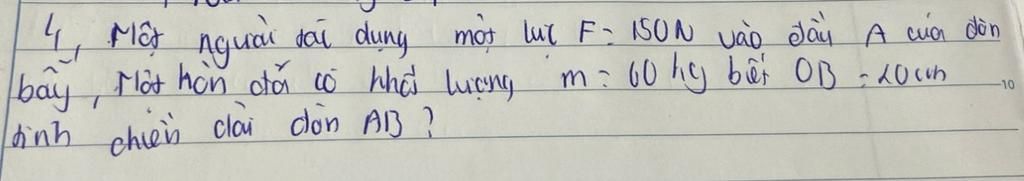 4, Một người tác dụng một lực F = 150N vào đầu A của đòn
bẩy, Một hòn đá có khối lượng m = 60 kg biết OB = 20cm
tính chiều dài đòn AB ?
10